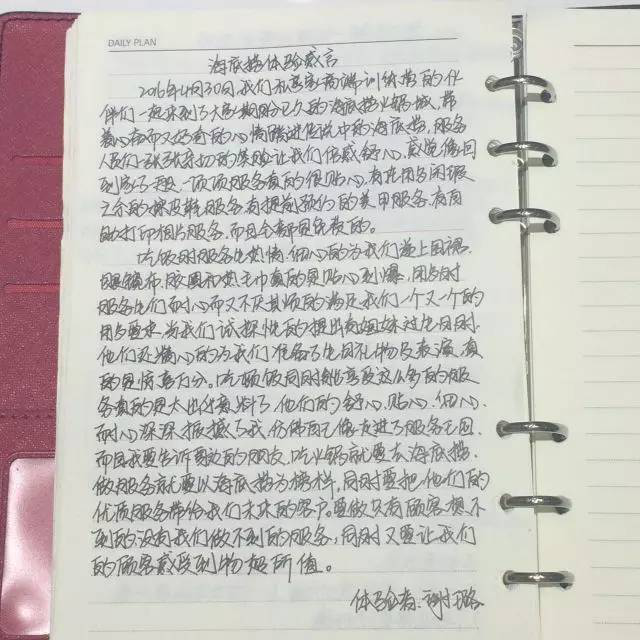 DAILY PLAN
海底捞体验感言
2016年4月30日,我们和尊客高端训练营的伙
伴们一起来到了大家期盼已久的海底捞火锅城,带
着心奋而又好奇的心情踏进传说中的海底捞,服务
人员们一张张亲切的笑脸让我们倍感舒心,感觉像回
到家了一样,一项项服务真的很贴心,有在用餐闲暇
之余的擦皮鞋服务,有提前预约的美甲服务,有自
助打印相片服务,而且全都是免费的。
吃饭时服务也热情,细心的为我们递上围裙、
眼镜布、胶圈和热毛巾真的是贴心到爆,用餐时
服务生们耐心而又不厌其烦的满足我们一个又一个的
用餐要求,当我们试探性的提出有姐妹过生日时,
他们还精心的为我们准备了生日礼物及表演,真
的是惊喜万分。吃顿饭同时能享受这么多的服
务真的是太出乎意料了,他们的舒心、贴心、细心、
耐心深深振撼了我,仿佛自己像走进了服务王国,
而且我要告诉周边的朋友,吃火锅就要去海底捞,
做服务就要以海底捞为榜样,同时要把他们的
优质服务带给我们未来的客户。要做只有顾客想不
到的,没有我们做不到的服务,同时又要让我们
的顾客感受到物超所值。
体验者:谢璐